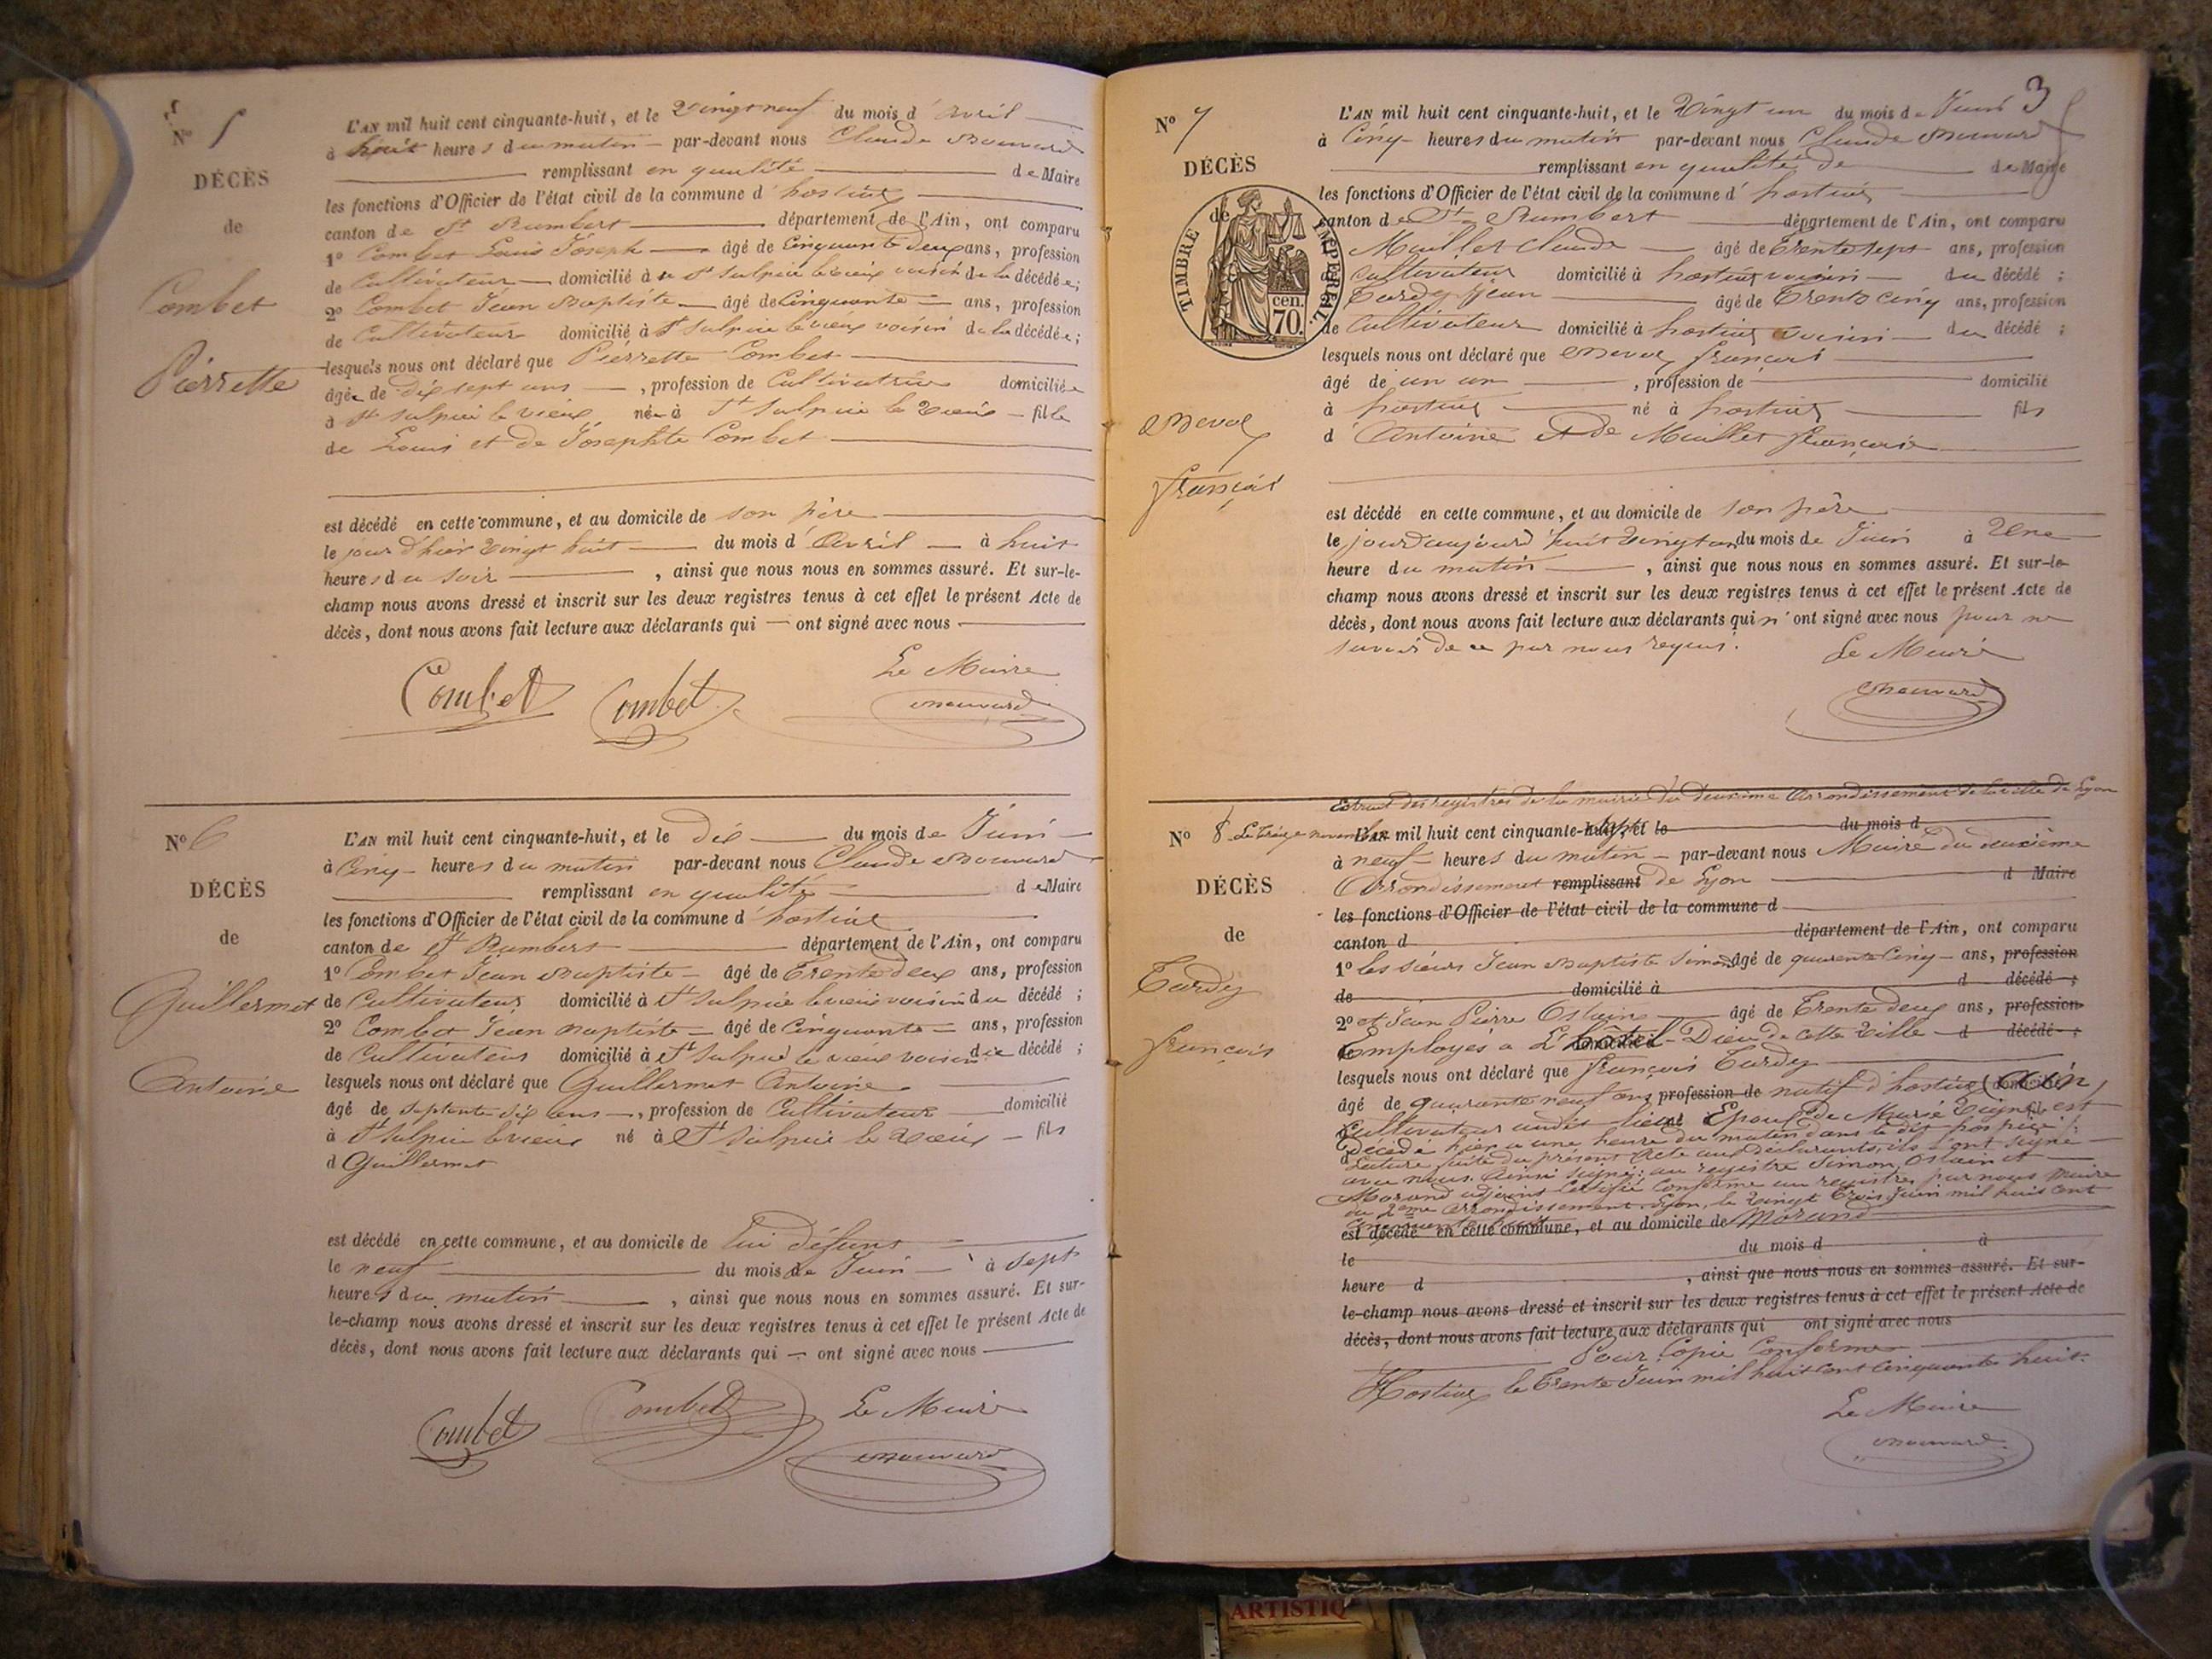 No 5
DÉCÈS
de
Combet
Pierrette
L'AN mil huit cent cinquante-huit, et le Vingt neuf du mois d'Avril
à huit heures du matin par-devant nous Claude
remplissant en qualité de Maire
les fonctions d'Officier de l'état civil de la commune d'hostiaz
canton de St Rambert département de l'Ain, ont comparu
1° Combet Louis Joseph âgé de Cinquante deux ans, profession
de Cultivateur domicilié à St Sulpice le vieux voisin de la décédée;
2° Combet Jean Baptiste âgé de Cinquante ans, profession
de Cultivateur domicilié à St Sulpice le vieux voisin de la décédée;
lesquels nous ont déclaré que Pierrette Combet
âgée de dix sept ans, profession de Cultivatrice domiciliée
à St Sulpice le vieux née à St Sulpice le vieux fille
de Louis et de Josephte Combet
est décédé en cette commune, et au domicile de son père
le jour d'hier vingt huit du mois d'Avril à huit
heures du soir, ainsi que nous nous en sommes assuré. Et sur-le-
champ nous avons dressé et inscrit sur les deux registres tenus à cet effet le présent Acte de
décès, dont nous avons fait lecture aux déclarants qui ont signé avec nous
Le Maire
Combet Combet
No 6
DÉCÈS
de
Guillermet
Antoine
L'AN mil huit cent cinquante-huit, et le dix du mois de Juin
à Cinq heures du matin par-devant nous Claude
remplissant en qualité de Maire
les fonctions d'Officier de l'état civil de la commune d'hostiaz
canton de St Rambert département de l'Ain, ont comparu
1° Combet Jean Baptiste âgé de Trente deux ans, profession
de Cultivateur domicilié à St Sulpice le vieux voisin du décédé;
2° Combet Jean Baptiste âgé de Cinquante ans, profession
de Cultivateur domicilié à St Sulpice le vieux voisin du décédé;
lesquels nous ont déclaré que Guillermet Antoine
âgé de septante six ans, profession de Cultivateur domicilié
à St Sulpice le vieux né à St Sulpice le vieux fils
d Guillermet
est décédé en cette commune, et au domicile de lui défunt
le neuf du mois de Juin à sept
heures du matin, ainsi que nous nous en sommes assuré. Et sur-
le-champ nous avons dressé et inscrit sur les deux registres tenus à cet effet le présent Acte de
décès, dont nous avons fait lecture aux déclarants qui ont signé avec nous
Combet Combet Le Maire
3
No 7
DÉCÈS
de
TIMBRE IMPERIAL
cen.
70.
François
L'AN mil huit cent cinquante-huit, et le Vingt un du mois de Juin
à Cinq heures du matin par-devant nous Claude
remplissant en qualité de de Maire
les fonctions d'Officier de l'état civil de la commune d'hostiaz
canton de St Rambert département de l'Ain, ont comparu
Maillet Claude âgé de Trente sept ans, profession
Cultivateur domicilié à hostiaz voisin du décédé;
Tardy Jean âgé de Trente Cinq ans, profession
de Cultivateur domicilié à hostiaz voisin du décédé;
lesquels nous ont déclaré que François
âgé de un an, profession de domicilié
à hostiaz né à hostiaz fils
d'Antoine et de Maillet Françoise
est décédé en cette commune, et au domicile de son père
le jourd'aujourd'huit vingt un du mois de Juin à Une
heure du matin, ainsi que nous nous en sommes assuré. Et sur-le-
champ nous avons dressé et inscrit sur les deux registres tenus à cet effet le présent Acte de
décès, dont nous avons fait lecture aux déclarants qui n'ont signé avec nous pour ne
savoir de ce par nous requis.
Le Maire
Extrait des registres de la mairie du deuxième Arrondissement de la ville de Lyon
No 8
DÉCÈS
de
Tardy
François
Le Treize novembre L'AN mil huit cent cinquante-sept, et le du mois d
à neuf heures du matin par-devant nous Maire du deuxième
Arrondissement remplissant de Lyon d Maire
les fonctions d'Officier de l'état civil de la commune d
canton d département de l'Ain, ont comparu
1° les sieurs Jean Baptiste Simon âgé de quarante Cinq ans, profession
de domicilié à d décédé;
2° et Jean Pierre Oslain âgé de Trente deux ans, profession
Employés a L'hôtel-Dieu de cette Ville d décédé;
lesquels nous ont déclaré que François Tardy
âgé de quarante neuf ans profession de natif d'hostiaz (Ain)
Cultivateur audit lieu Epoux de Marie est
décédé hier a une heure du matin dans le dit hospice
Lecture faite du présent Acte aux déclarants, ils l'ont signé
avec nous. Ainsi signé: au registre Simon, Oslain et
Morand adjoint Certifié Conforme au registre par nous Maire
du 2eme Arrondissement Lyon, le Vingt Trois Juin mil huit cent
cinquante huit
est décédé en cette commune, et au domicile de Morand
le du mois d à
heure d, ainsi que nous nous en sommes assuré. Et sur-
le-champ nous avons dressé et inscrit sur les deux registres tenus à cet effet le présent Acte de
décès, dont nous avons fait lecture aux déclarants qui ont signé avec nous
Pour Copie Conforme
Hostiaz le Trente Juin mil huit cent cinquante huit.
Le Maire
ARTISTIQ